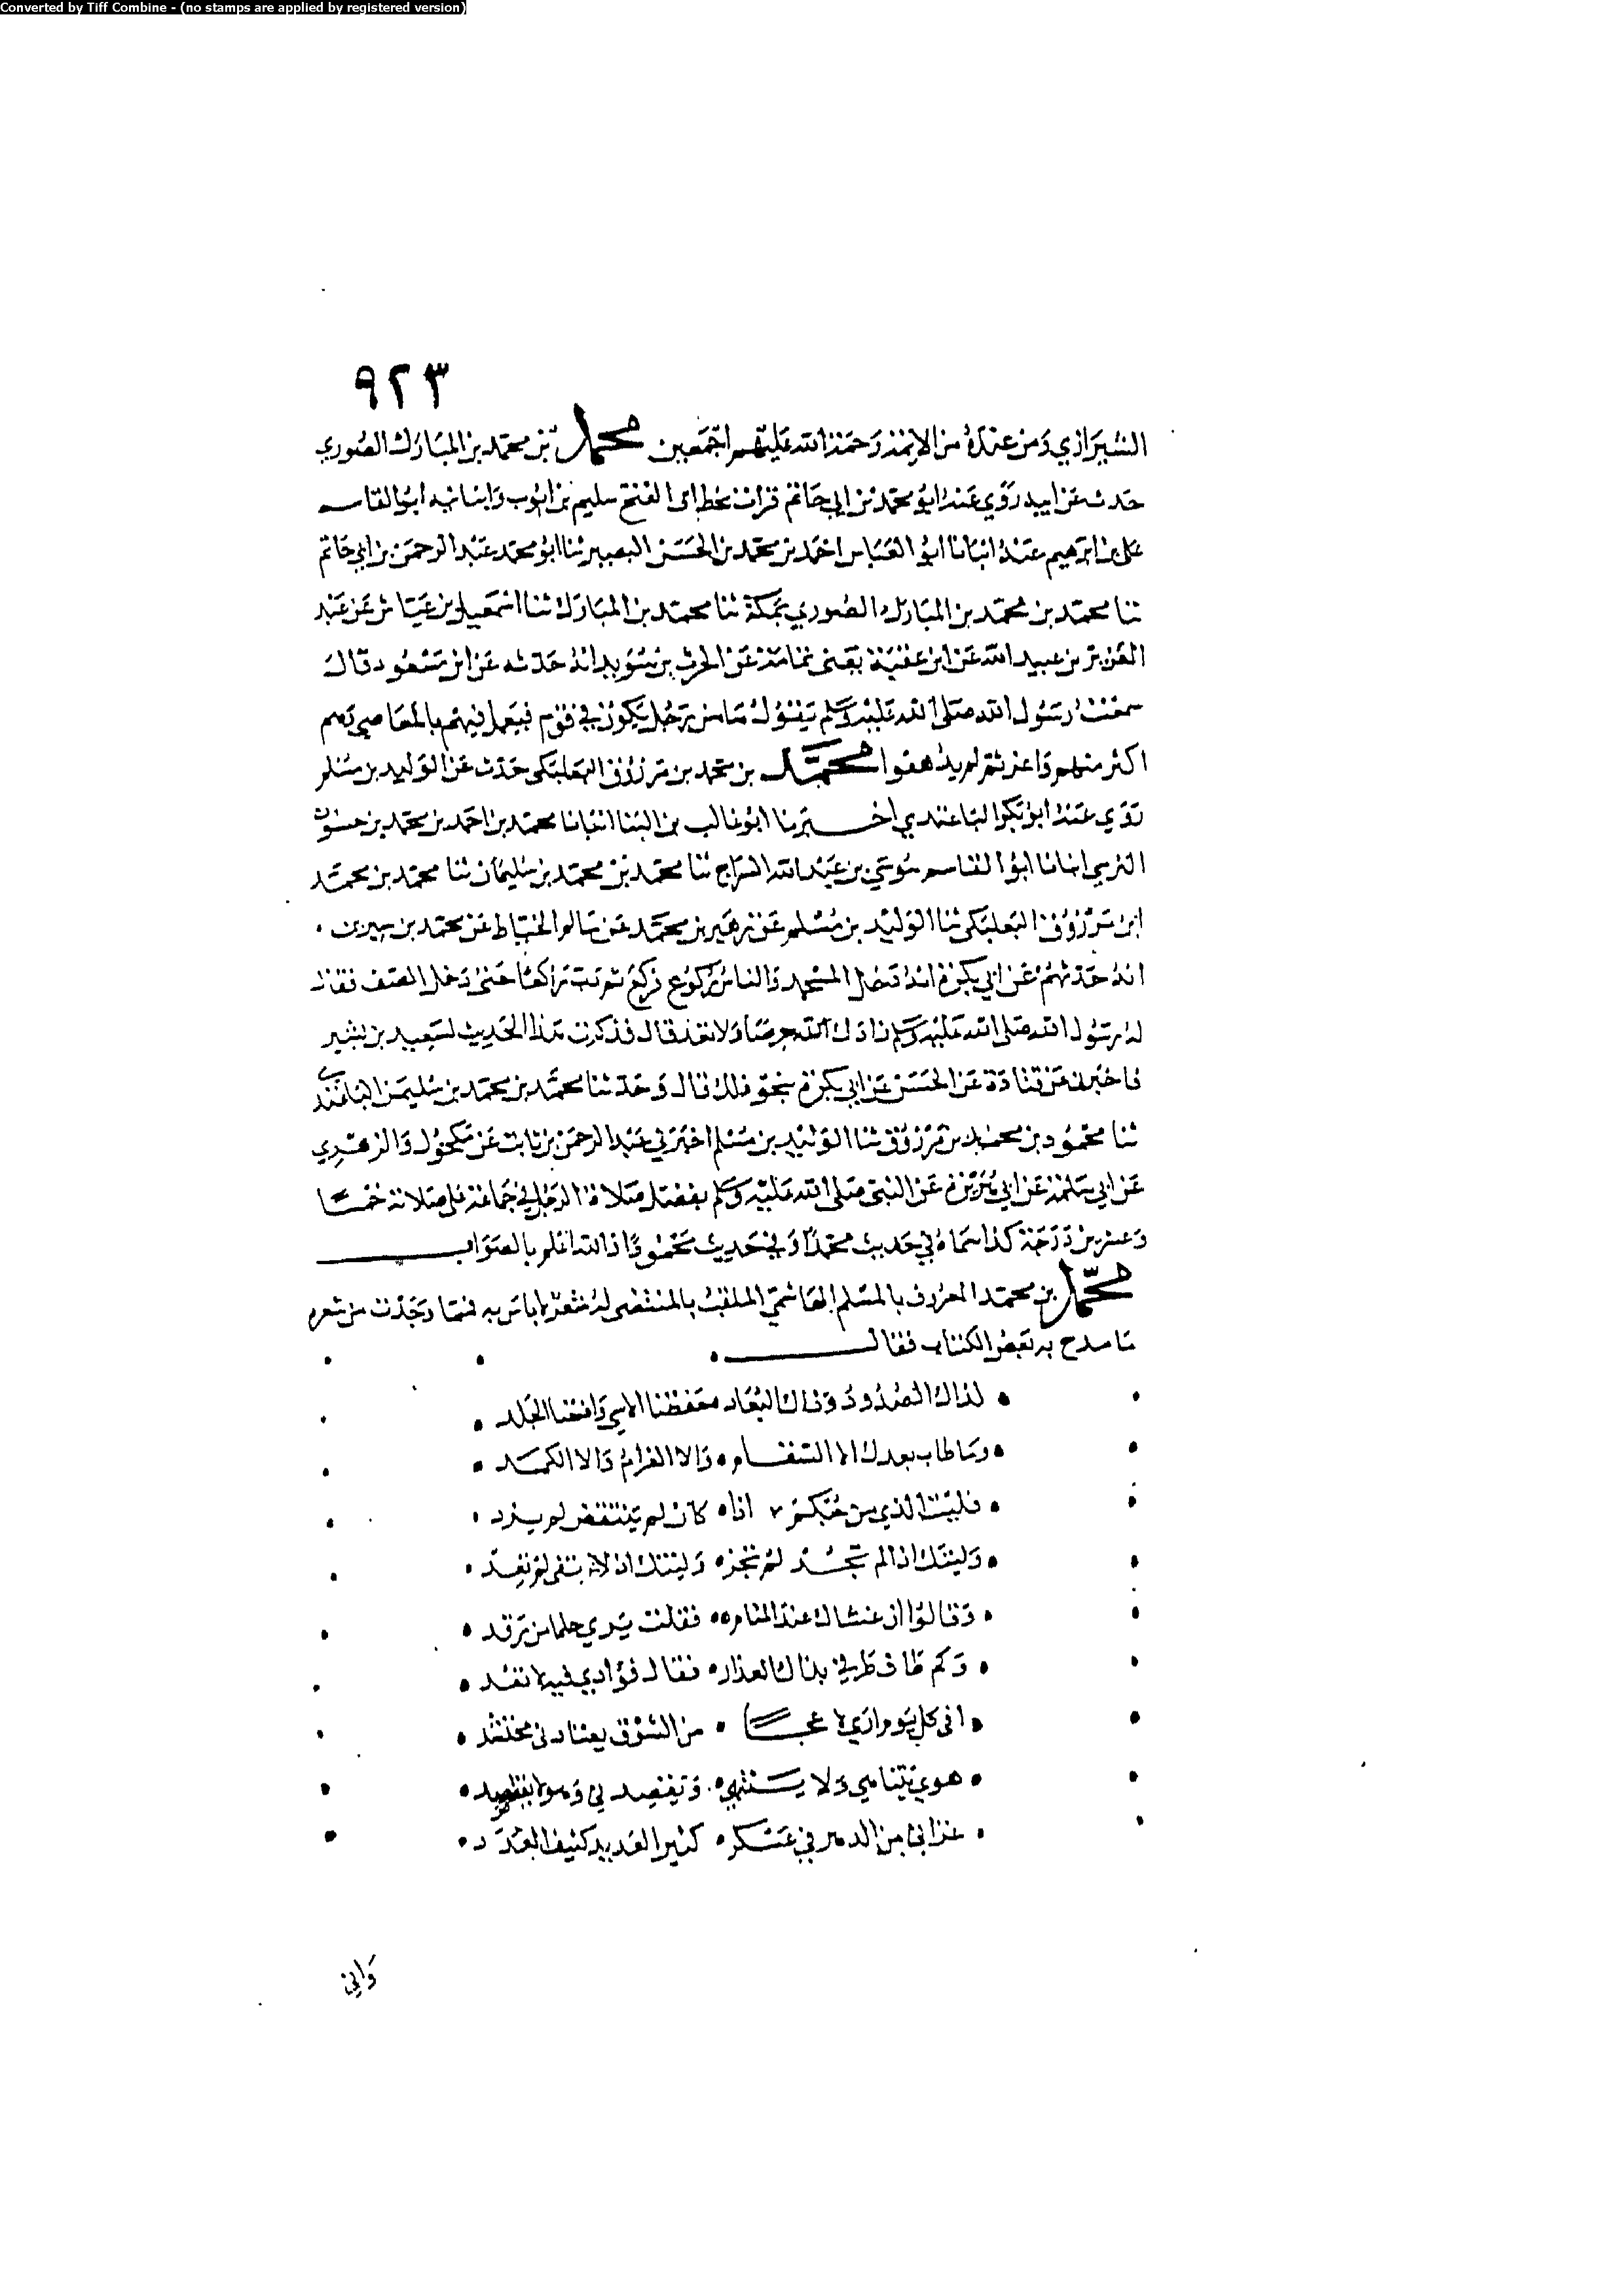 Converted by Tiff Combine - (no stamps are applied by registered version)
٩٢٣
الشيرازي ومن عنده من الايمة رحمة الله عليهم اجمعين محمد بن محمد بن المبارك الصوري
حدث عن ابيه روي عنه ابو محمد بن ابي حاتم قرات بخط ابى الفتح سليم بن ايوب وانبانيه ابو القاسم
على بن ابرهيم عنه انبانا ابو العباس احمد بن محمد بن الحسن البصير ثنا ابو محمد عبد الرحمن بن ابي حاتم
ثنا محمد بن محمد بن المبارك الصوري بمكة ثنا محمد بن المبارك ثنا اسمعيل بن عياش عن عبد
العزيز بن عبيد الله عن ابن عقبة يعنى ثمامة عن الحرث بن سويد انه حدثه عن ابن مسعود قال
سمعت رسول الله صلى الله عليه وسلم يقول ما من رجل يكون في قوم فيعمل فيهم بالمعاصي وهم
اكثر منهم واعز ثم لم يدهنوا محمد بن محمد بن مرزوق البعلبكى حدث عن الوليد بن مسلم
روي عنه ابو بكر الباغندي اخبرنا ابو غالب بن البنا انبانا محمد بن احمد بن محمد بن حسنون
النرسي انبانا ابو القاسم موسي بن عبد الله السراج ثنا محمد بن محمد بن سليمان ثنا محمد بن محمد
ابن مرزوق البعلبكى ثنا الوليد بن مسلم عن زهير بن محمد عن سالم الخياط عن محمد بن سيرين
انه حدثهم عن ابي بكرة انه دخل المسجد والناس ركوع فركع ثم دب راكعا حتى دخل الصف فقال
له رسول الله صلى الله عليه وسلم زادك الله حرصا ولا تعد قال فذكرت هذا الحديث لسعيد بن بشير
فاخبرني عن قتادة عن الحسن عن ابي بكرة بنحو ذلك قال وحدثنا محمد بن محمد بن سليمن الباغندي
ثنا محمود بن محمد بن مرزوق ثنا الوليد بن مسلم اخبرني عبد الرحمن بن ثابت عن مكحول والزهري
عن ابي سلمة عن ابي هريرة عن النبي صلى الله عليه وسلم يفضل صلاة الرجل في جماعة على صلاته خمسا
وعشرين درجة كذا سماه في حديث محمدا وفي حديث محمودا فالله اعلم بالصواب
محمد بن محمد المعروف بالمسلم الهاشمي الملقب بالمنتضى له شعر لا باس به فمما وجدت من شعره
ما مدح به بعض الكتاب فقال
لذاك الصدود وذاك البعاد حفظنا الاسي واضعنا الجلد
وما طاب بعدك الا السقام والا الغرام والا الكمد
فليت الذي من حبكم اذا كان لم ينتقض لم يزد
وليتك اذ لم تجد لم تجز وليتك اذ لا تفى لم تعد
وقالوا ان غشاك عند المنام فقلت يري حلما من رقد
وكم طاف طرفي بذاك العذار فقال فؤادي فيه لا تعد
افى كل يوم اري لا عجبا من الشوق يعتادنى محتشد
هوي يتناهي ولا ينتهي ويقصد لي وهو لا يقتصد
عذابي من الدهر في عسكر كثير العديد كثيف العدد
وانى